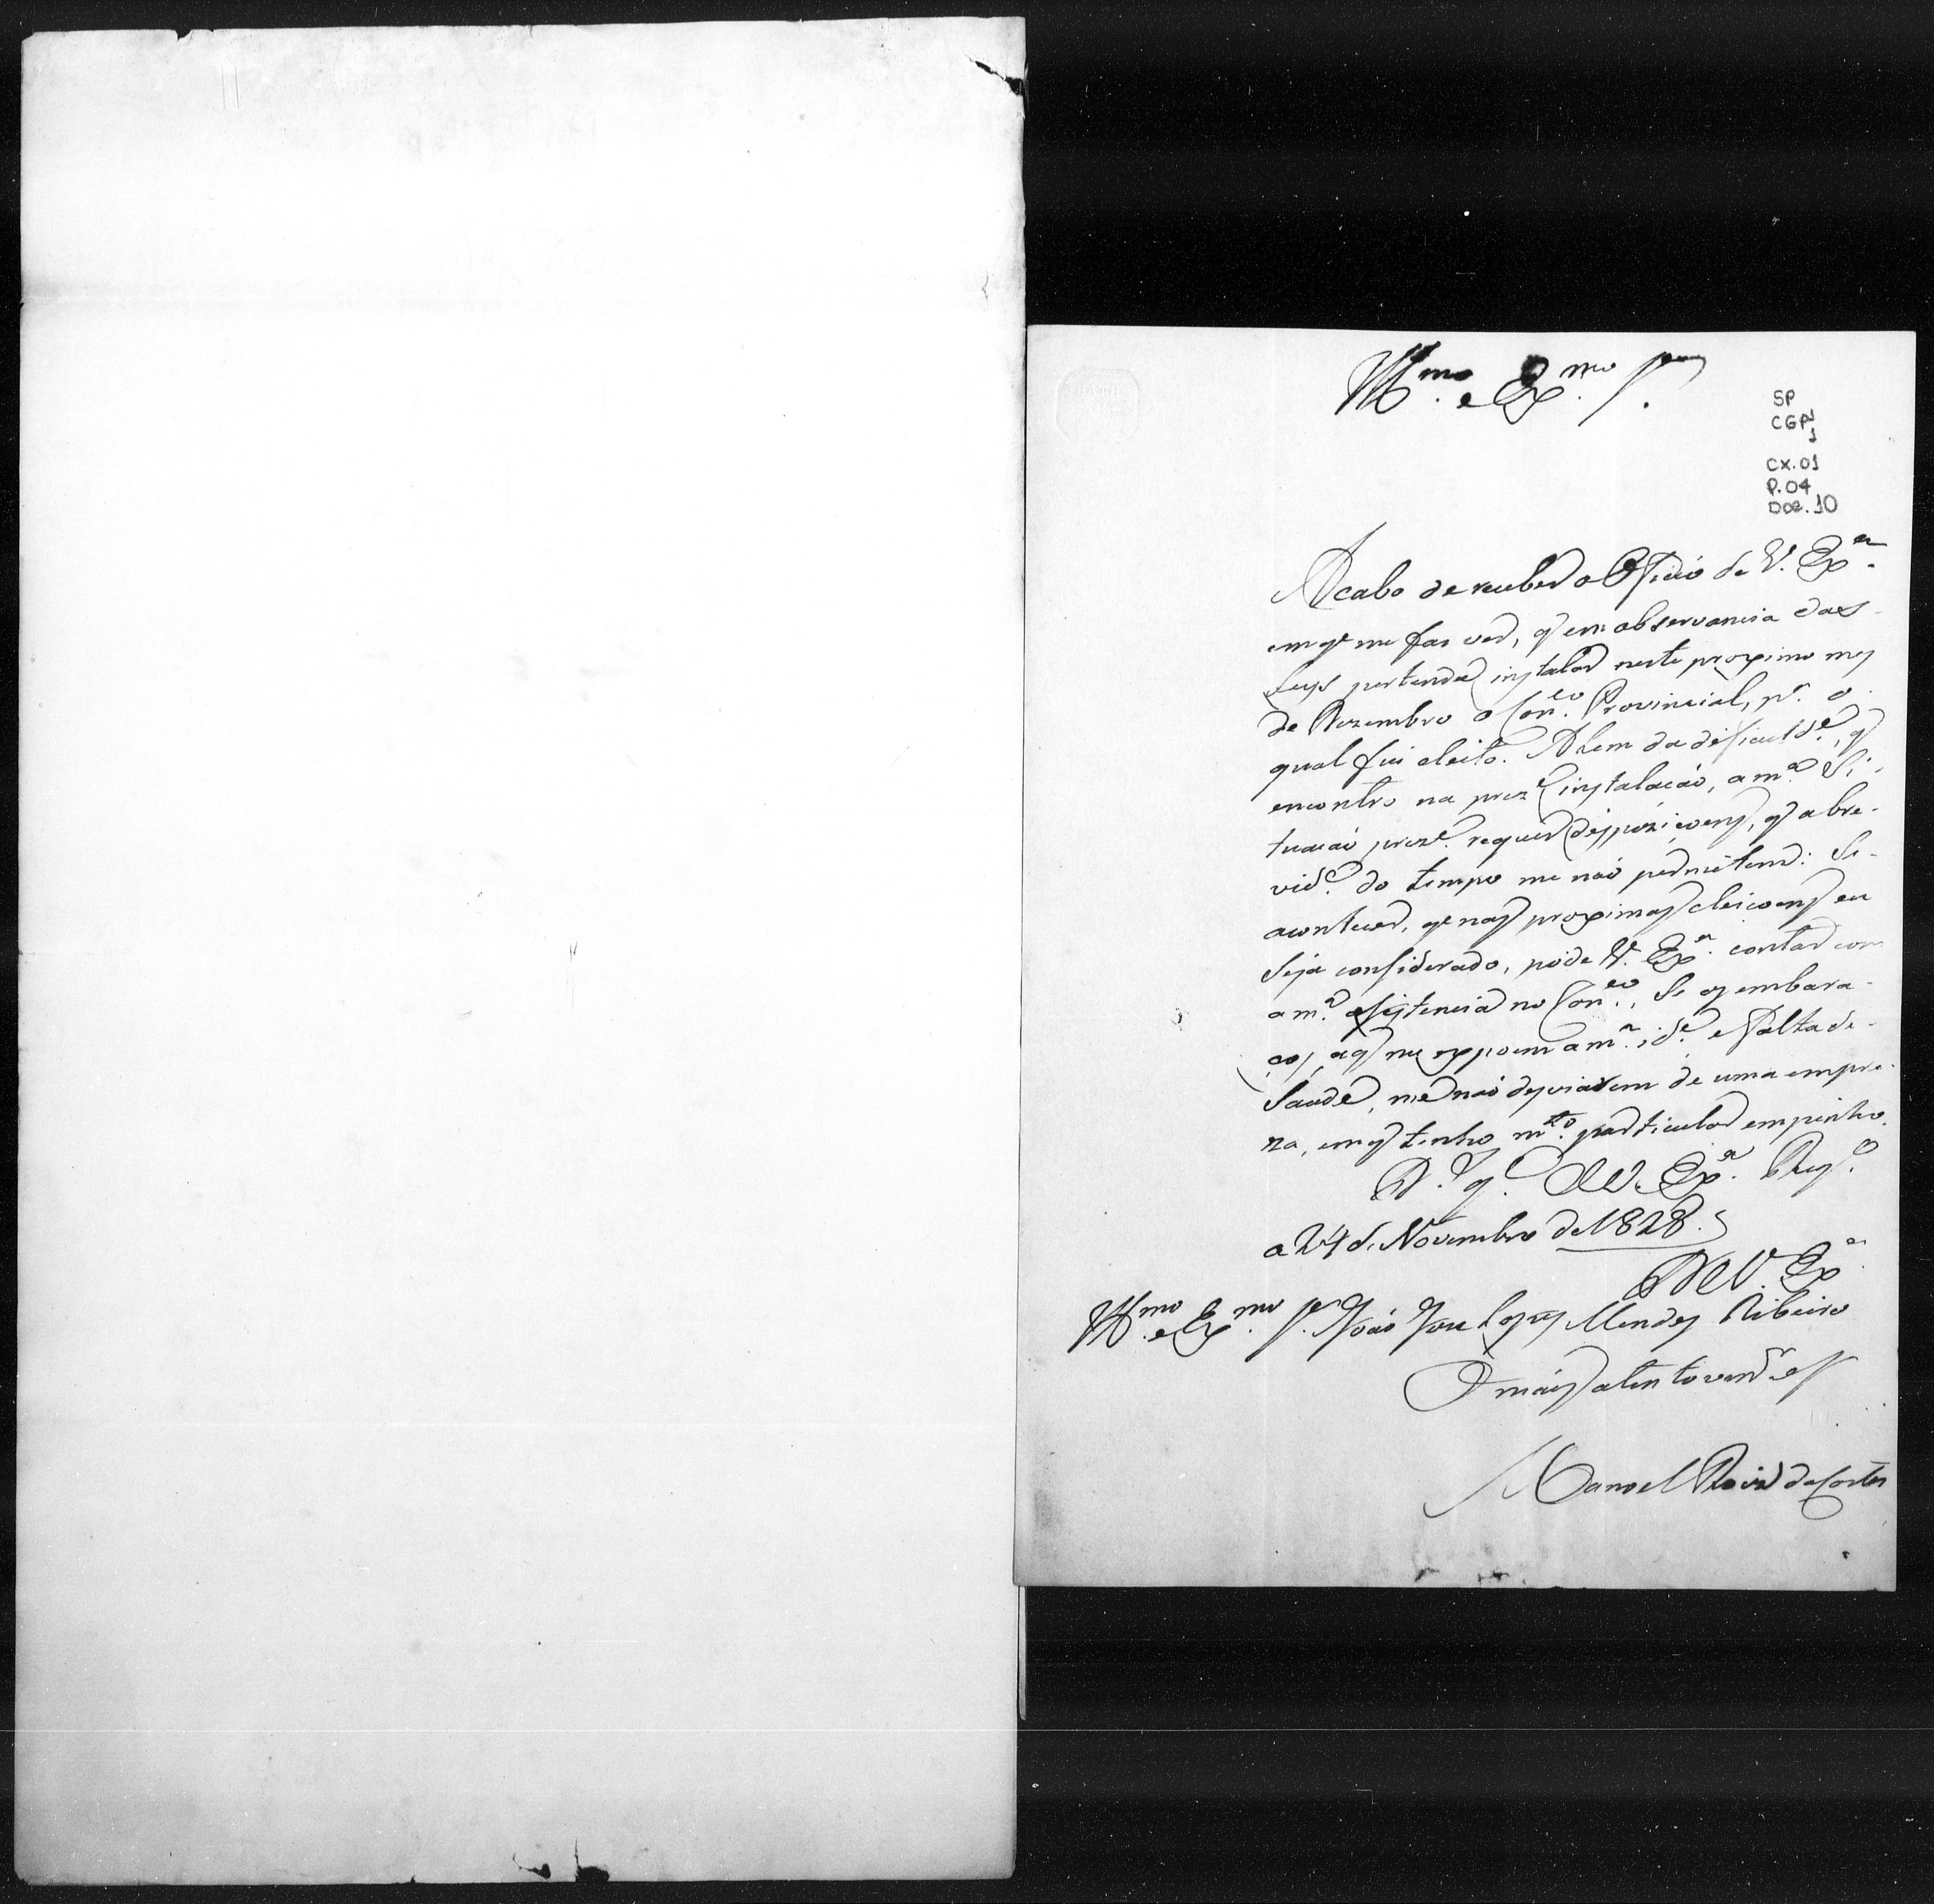 Illmo. e Exmo. Sr.
SP
CGP1
1
CX.01
P.04
Doc. 10
Acabo de receber o Oficio de V. Exa.
em qe me faz ver, q em observancia das
Leys pertende instalar neste proximo mez
de Dezembro o Coneo. Provincial, pa. o
qual fui eleito. Alem da dificulde., q
encontro na preze. instalacáo, a ma. Si-
tuacáo preze. requer dispoziçoens, q a bre-
vide. do tempo me naó permitem: Se
acontecer, qe nas proximas eleicoens eu
Seja considerado, póde V. Exa. contar com
a ma. asistencia no Coneo., Se os embara-
ços, a q me expoem a ma. ide. e falta de
Saude, me naó desviarem de uma empre-
za, em q tenho mto. particular empenho.
De. ge. a V. Exa.
a 24 de Novembro de 1828.
De V. Exa.
Illmo. e Exmo. Sr. Joáo Joze Lopes Mendes Ribeiro
O mais atento venor. e
Manoel